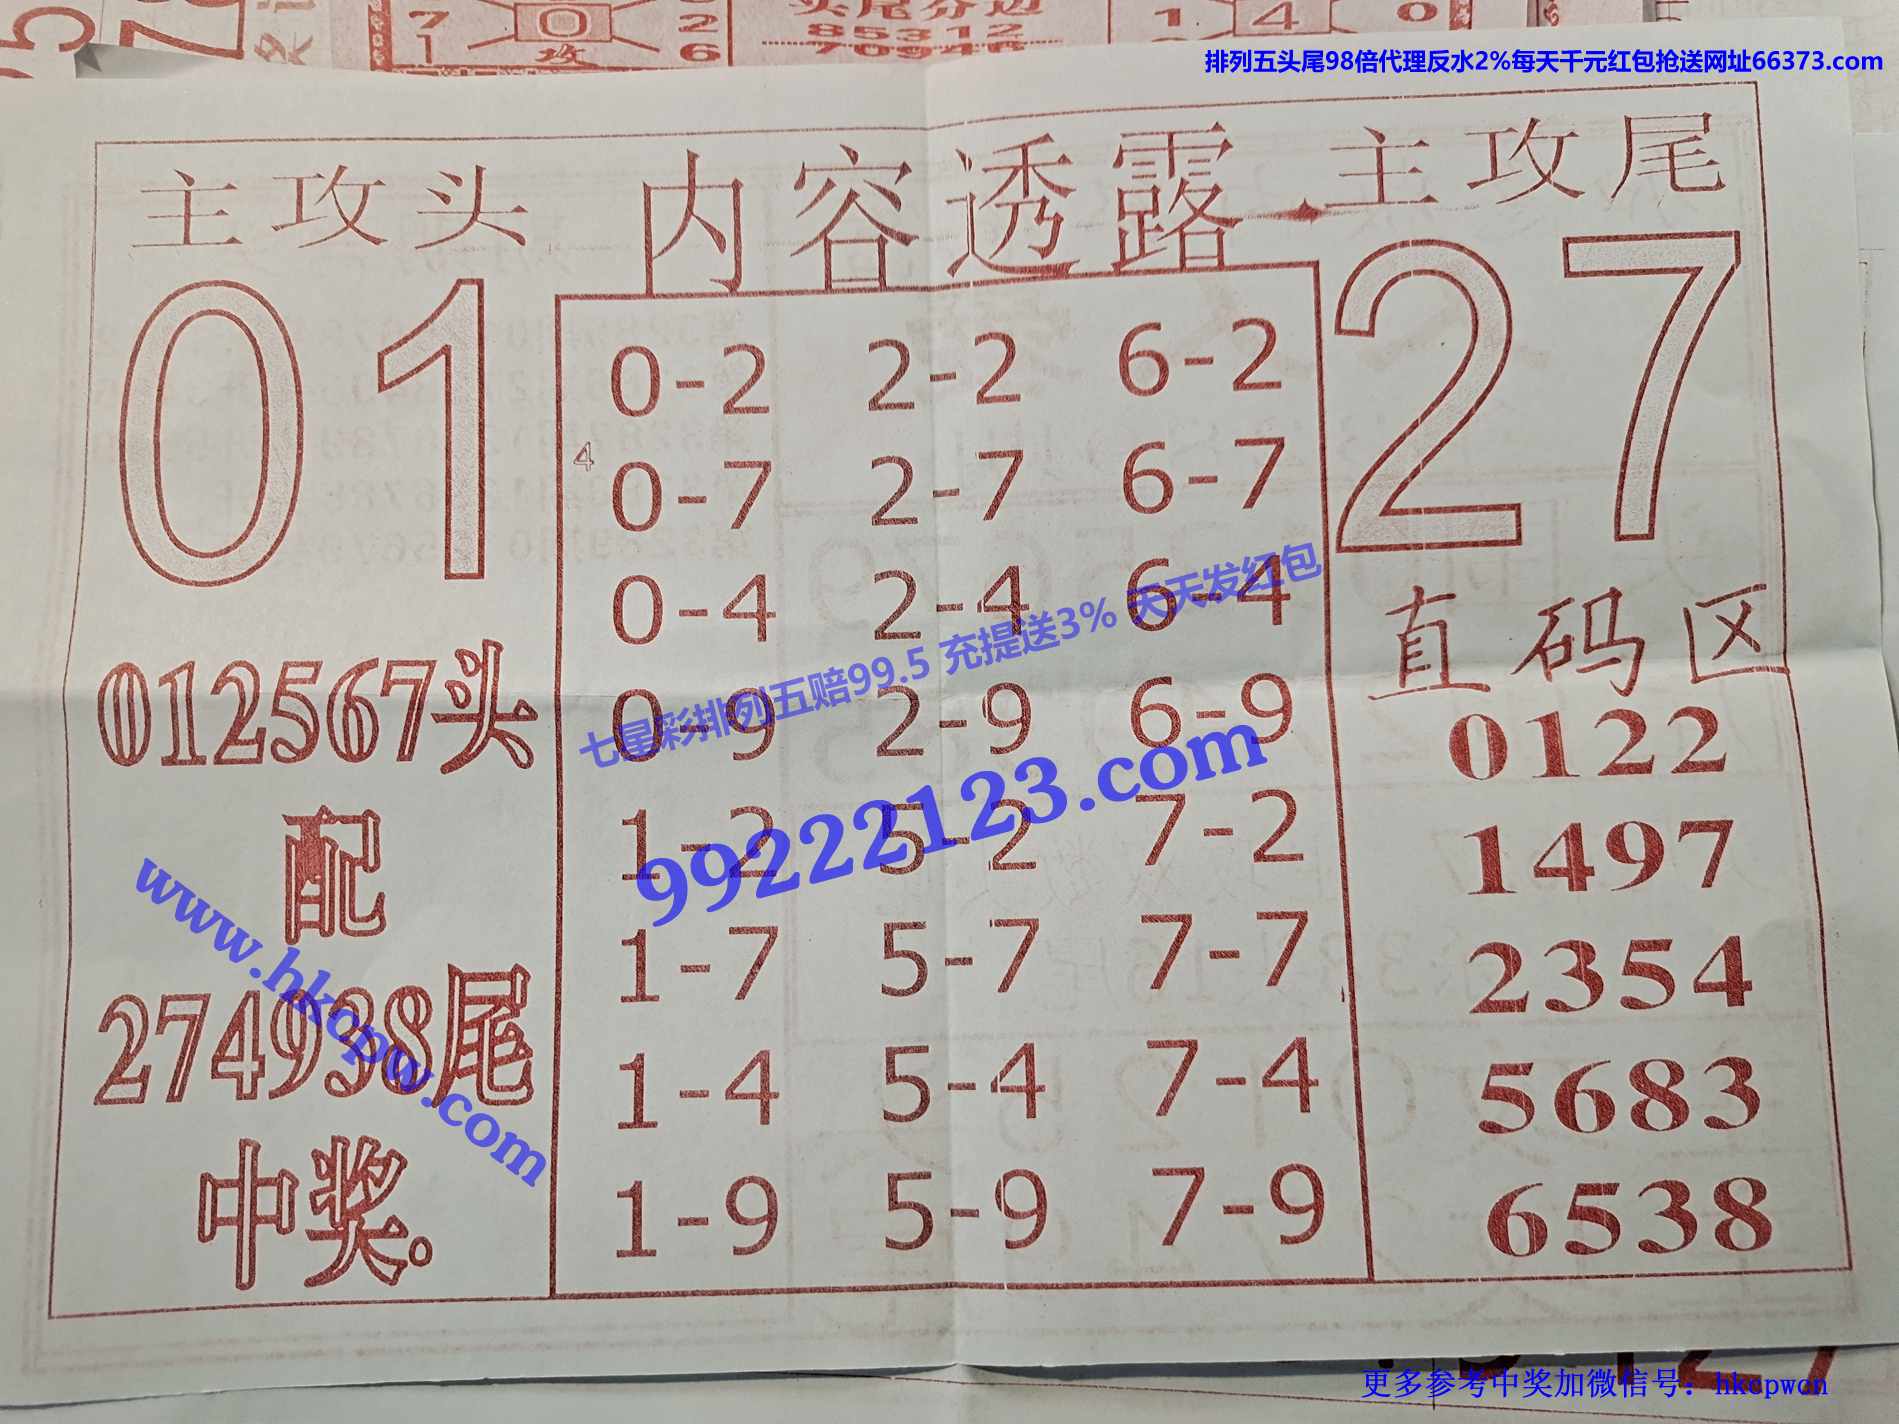 7 0 2
1 攻 6
头尾分边
85312
70946
1 4 0
排列五头尾98倍代理反水2%每天千元红包抢送网址66373.com
主攻头 内容透露 主攻尾
01 27
0-2 2-2 6-2
4
0-7 2-7 6-7
0-4 2-4 6-4
0-9 2-9 6-9
1-2 5-2 7-2
1-7 5-7 7-7
1-4 5-4 7-4
1-9 5-9 7-9
012567头
配
274938尾
中奖。
直码区
0122
1497
2354
5683
6538
七星彩排列五赔99.5 充提送3% 天天发红包
99222123.com
www.hkcpw.com
更多参考中奖加微信号：hkcpwcn